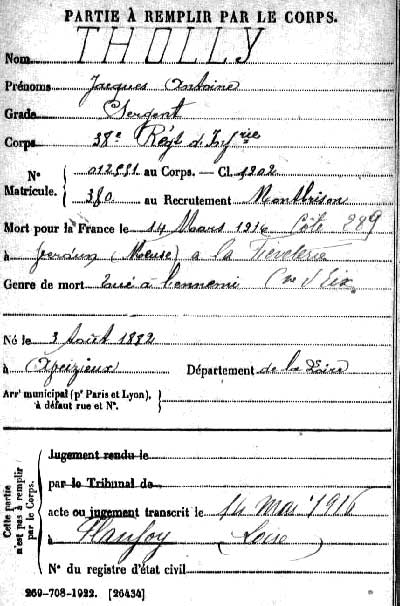 PARTIE À REMPLIR PAR LE CORPS.
Nom THOLLY
Prénoms Jacques Antoine
Grade Sergent
Corps 38e Régt d'Infrie
N° Matricule. 012551 au Corps. — Cl. 1902
380 au Recrutement Montbrison
Mort pour la France le 14 Mars 1916 Côte 289
à Verdun (Meuse) a la
Genre de mort Tué à l'ennemi Cne d'Eix
Né le 3 Août 1882
à Département de la Loire
Arrt municipal (pr Paris et Lyon), à défaut rue et N°.
Cette partie n'est pas à remplir par le Corps.
Jugement rendu le
par le Tribunal de
acte ou jugement transcrit le 14 mai 1916
à Planfoy (Loire
N° du registre d'état civil
269-708-1922. [26434]